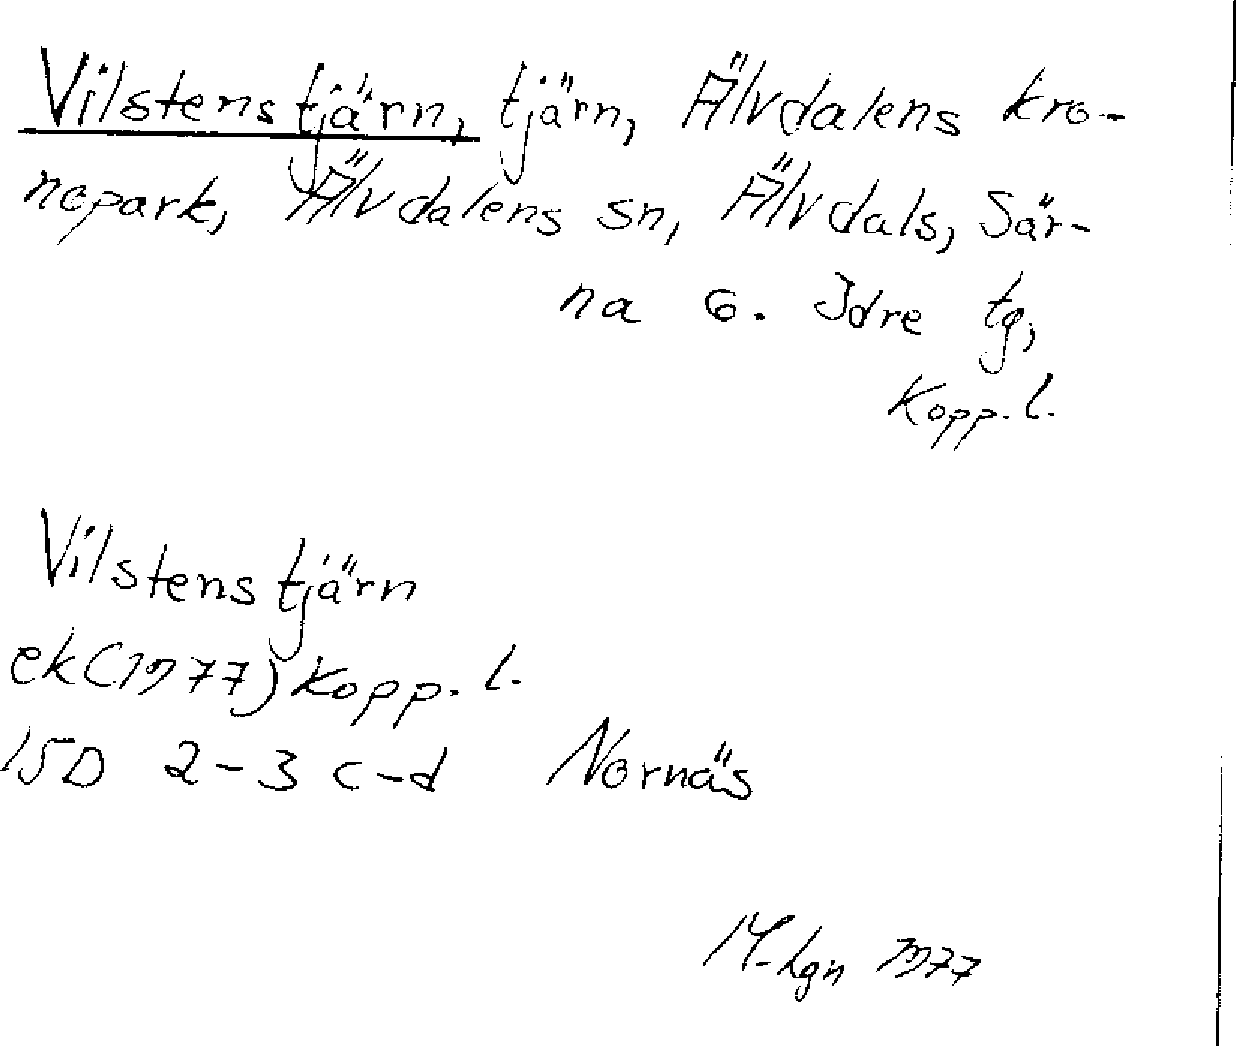 Vilstenstjärn, tjärn, Älvdalens kro-
nopark, Älvdalens sn, Älvdals, Sär-
na o. Idre tg,
Kopp. l.
Vilstenstjärn
ek (1977) Kopp. l.
15D 2-3 c-d Nornäs
M-lgn 1977